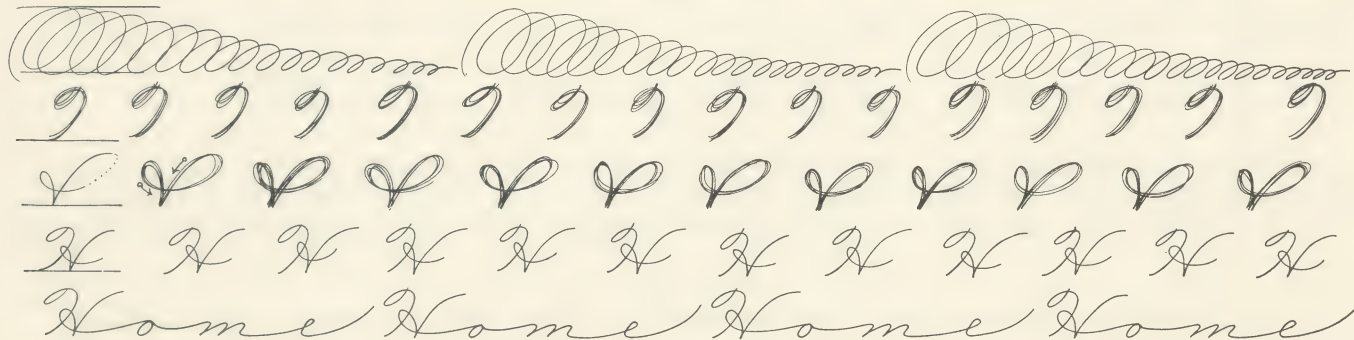 H H H H H H H H H H H H
Home Home Home Home